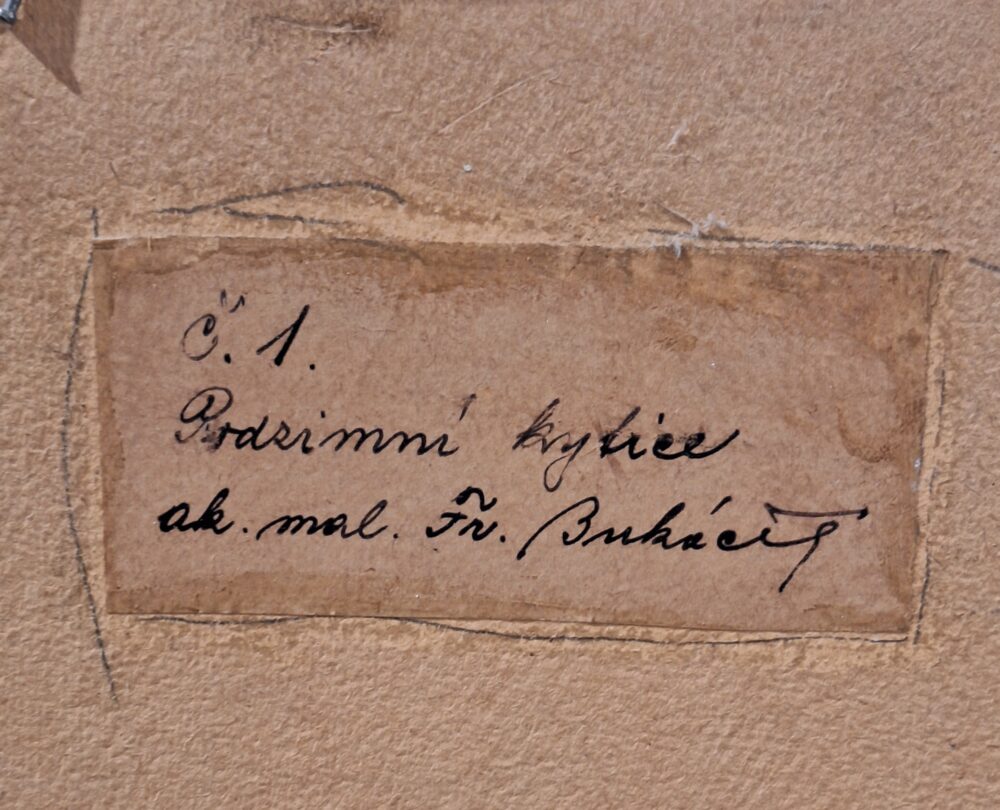 Č. 1.
Podzimní kytice
ak. mal. Fr. Bukáček